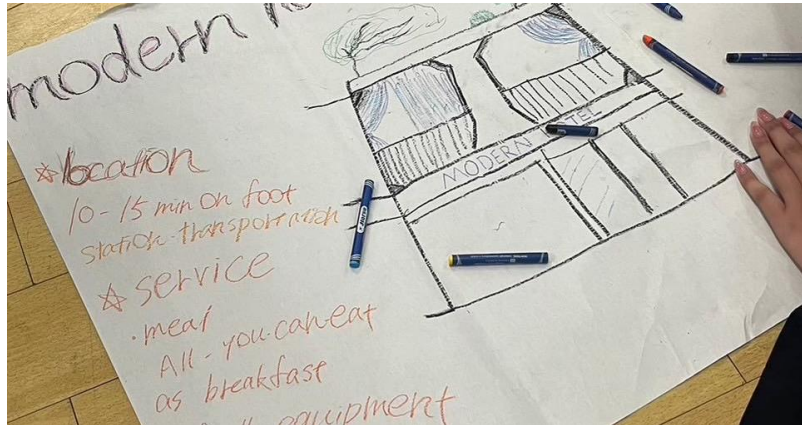 modern
☆location
10-15 min on foot
station-transportation
☆service
・meal
All-you-can-eat
as breakfast
equipment
MODERN TEL